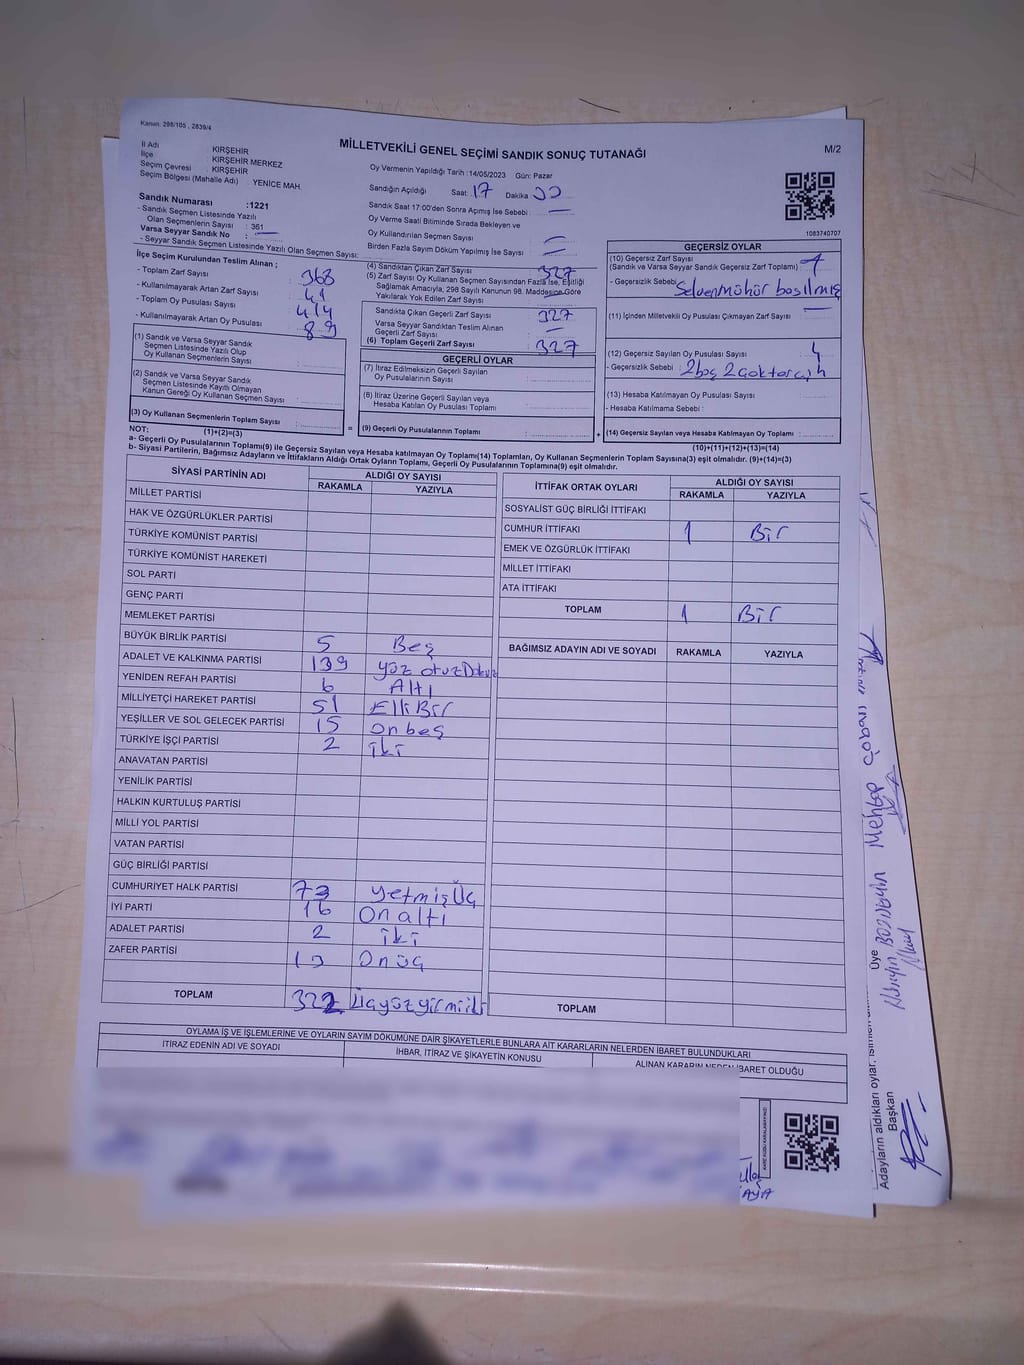 Kanun: 298/105 , 2839/4
MİLLETVEKİLİ GENEL SEÇİMİ SANDIK SONUÇ TUTANAĞI
M/2
İl Adı KIRŞEHİR
İlçe : KIRŞEHİR MERKEZ
Seçim Çevresi : KIRŞEHİR
Seçim Bölgesi (Mahalle Adı) : YENİCE MAH.
Oy Vermenin Yapıldığı Tarih :14/05/2023 Gün: Pazar
Sandığın Açıldığı Saat: 17 Dakika
Sandık Saat 17:00'den Sonra Açmış İse Sebebi : —
Oy Verme Saati Bitiminde Sırada Bekleyen ve
Oy Kullandırılan Seçmen Sayısı :
Birden Fazla Sayım Döküm Yapılmış İse Sayısı :
1083740707
Sandık Numarası :1221
- Sandık Seçmen Listesinde Yazılı
Olan Seçmenlerin Sayısı : 361
Varsa Seyyar Sandık No : —
- Seyyar Sandık Seçmen Listesinde Yazılı Olan Seçmen Sayısı:
İlçe Seçim Kurulundan Teslim Alınan ;
- Toplam Zarf Sayısı : 368
- Kullanılmayarak Artan Zarf Sayısı : 41
- Toplam Oy Pusulası Sayısı : 414
- Kullanılmayarak Artan Oy Pusulası : 89
(1) Sandık ve Varsa Seyyar Sandık
Seçmen Listesinde Yazılı Olup
Oy Kullanan Seçmenlerin Sayısı :
(2) Sandık ve Varsa Seyyar Sandık
Seçmen Listesinde Kayıtlı Olmayan
Kanun Gereği Oy Kullanan Seçmen Sayısı :
(3) Oy Kullanan Seçmenlerin Toplam Sayısı :
(4) Sandıktan Çıkan Zarf Sayısı : 327
(5) Zarf Sayısı Oy Kullanan Seçmen Sayısından Fazla İse, Eşitliği
Sağlamak Amacıyla, 298 Sayılı Kanunun 98. Maddesine Göre
Yakılarak Yok Edilen Zarf Sayısı :
Sandıkta Çıkan Geçerli Zarf Sayısı : 327
Varsa Seyyar Sandıktan Teslim Alınan
Geçerli Zarf Sayısı : —
(6) Toplam Geçerli Zarf Sayısı : 327
GEÇERLİ OYLAR
(7) İtiraz Edilmeksizin Geçerli Sayılan
Oy Pusulalarının Sayısı :
(8) İtiraz Üzerine Geçerli Sayılan veya
Hesaba Katılan Oy Pusulası Toplamı :
= (9) Geçerli Oy Pusulalarının Toplamı :
GEÇERSİZ OYLAR
(10) Geçersiz Zarf Sayısı
(Sandık ve Varsa Seyyar Sandık Geçersiz Zarf Toplamı) :
- Geçersizlik Sebebi
(11) İçinden Milletvekili Oy Pusulası Çıkmayan Zarf Sayısı : —
(12) Geçersiz Sayılan Oy Pusulası Sayısı : 4
- Geçersizlik Sebebi : 2 boş
(13) Hesaba Katılmayan Oy Pusulası Sayısı :
- Hesaba Katılmama Sebebi :
+ (14) Geçersiz Sayılan veya Hesaba Katılmayan Oy Toplamı :
NOT: (1)+(2)=(3)
(10)+(11)+(12)+(13)=(14)
a- Geçerli Oy Pusulalarının Toplamı(9) ile Geçersiz Sayılan veya Hesaba katılmayan Oy Toplamı(14) Toplamları, Oy Kullanan Seçmenlerin Toplam Sayısına(3) eşit olmalıdır. (9)+(14)=(3)
b- Siyasi Partilerin, Bağımsız Adayların ve İttifakların Aldığı Ortak Oyların Toplamı, Geçerli Oy Pusulalarının Toplamına(9) eşit olmalıdır.
SİYASİ PARTİNİN ADI ALDIĞI OY SAYISI
RAKAMLA YAZIYLA
MİLLET PARTİSİ
HAK VE ÖZGÜRLÜKLER PARTİSİ
TÜRKİYE KOMÜNİST PARTİSİ
TÜRKİYE KOMÜNİST HAREKETİ
SOL PARTİ
GENÇ PARTİ
MEMLEKET PARTİSİ
BÜYÜK BİRLİK PARTİSİ 5 Beş
ADALET VE KALKINMA PARTİSİ 139 yüz otuzDokuz
YENİDEN REFAH PARTİSİ 6 Altı
MİLLİYETÇİ HAREKET PARTİSİ 51 Elli Bir
YEŞİLLER VE SOL GELECEK PARTİSİ 15 on beş
TÜRKİYE İŞÇİ PARTİSİ 2 iki
ANAVATAN PARTİSİ
YENİLİK PARTİSİ
HALKIN KURTULUŞ PARTİSİ
MİLLİ YOL PARTİSİ
VATAN PARTİSİ
GÜÇ BİRLİĞİ PARTİSİ
CUMHURİYET HALK PARTİSİ 73 yetmiş üç
İYİ PARTİ 16 On altı
ADALET PARTİSİ 2 iki
ZAFER PARTİSİ 13 Onüç
TOPLAM 322 üçyüz yirmi iki
İTTİFAK ORTAK OYLARI ALDIĞI OY SAYISI
RAKAMLA YAZIYLA
SOSYALİST GÜÇ BİRLİĞİ İTTİFAKI
CUMHUR İTTİFAKI 1 Bir
EMEK VE ÖZGÜRLÜK İTTİFAKI
MİLLET İTTİFAKI
ATA İTTİFAKI
TOPLAM 1 Bir
BAĞIMSIZ ADAYIN ADI VE SOYADI RAKAMLA YAZIYLA
TOPLAM
OYLAMA İŞ VE İŞLEMLERİNE VE OYLARIN SAYIM DÖKÜMÜNE DAİR ŞİKAYETLERLE BUNLARA AİT KARARLARIN NELERDEN İBARET BULUNDUKLARI
İTİRAZ EDENİN ADI VE SOYADI İHBAR, İTİRAZ VE ŞİKAYETİN KONUSU ALINAN KARARIN NEDEN İBARET OLDUĞU
Adayların aldıkları oylar,
Başkan
Üye
Mehtap